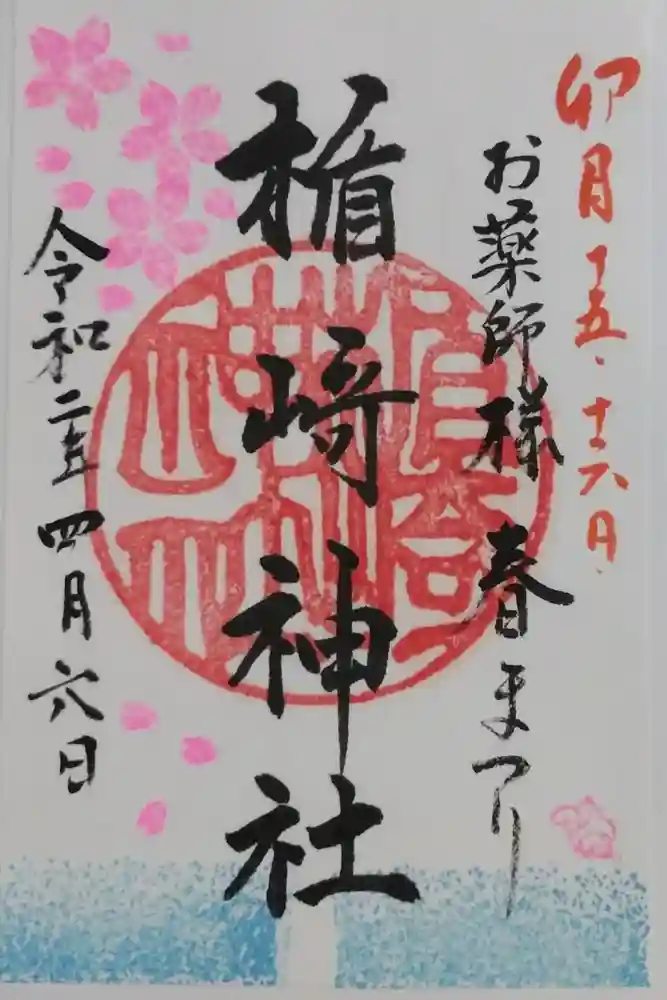 卯月十五・十六日
お薬師様 春まつり
楯崎神社
令和二五四月六日